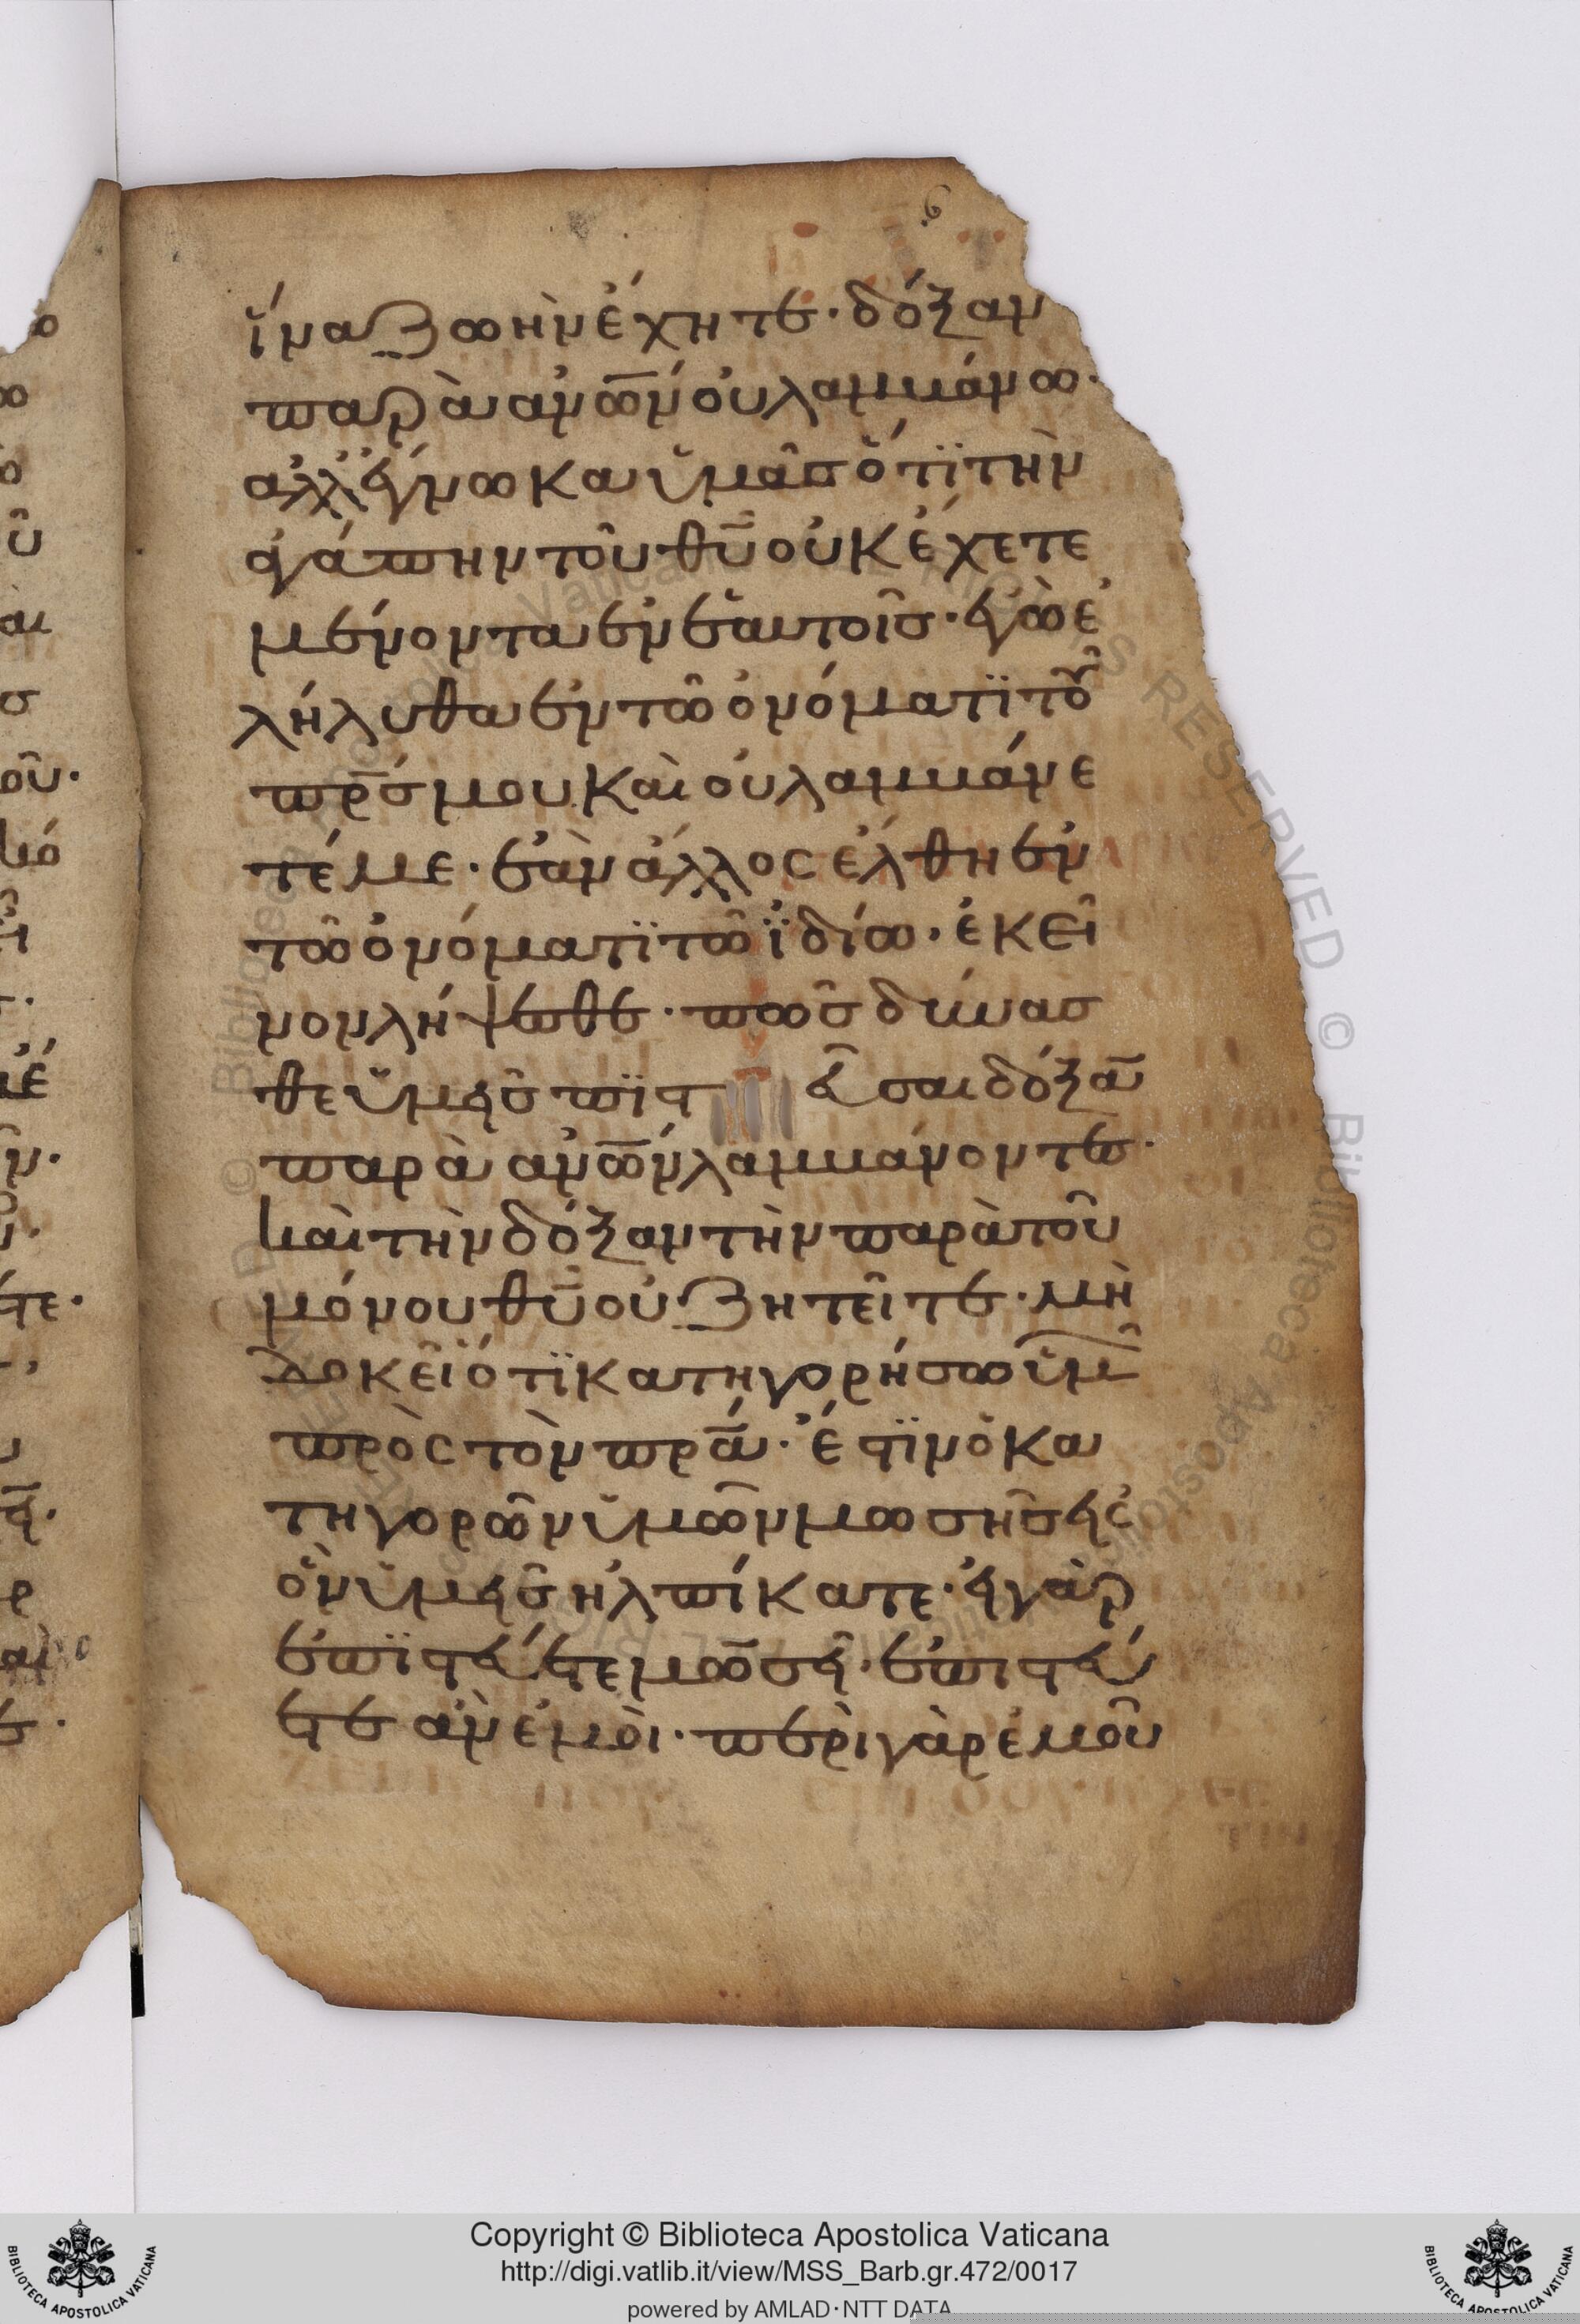 ϛ
ἵνα ζωὴν ἔχητε· δόξαν
παρὰ ἀν̅ω̅ν οὐ λαμβάνω·
ἀλλ' ἔγνωκα ὑμᾶς ὅτϊ τὴν
ἀγάπην τοῦ θ̅υ̅ οὐκ ἔχετε
μένοντα ἐν ἑαυτοῖς· ἐγὼ ἐ
λήλυθα ἐν τῶ ὀνόματϊ τοῦ
πρ̅ς μου καὶ οὐ λαμβάνε
τέ με· ἐὰν ἄλλος ἔλθη ἐν
τῶ ὀνόματϊ τῶ ἰδίω· ἐκεῖ
νον λήψεσθε· πῶς δύνασ
θε ὑμεῖς πϊστεῦσαι δόξα̅
παρὰ ἀν̅ω̅ν λαμβάνοντες·
καὶ τὴν δόξαν τὴν παρὰ τοῦ
μόνου θ̅υ̅ οὐ ζητεῖτε· μὴ
δοκεῖ ὅτϊ κατηγορήσω ὑμῶ
πρὸς τὸν πρ̅α· ἔστϊν ὁ κα
τηγορῶν ὑμῶν μωσῆς εἰς
ὃν ὑμεῖς ἠλπίκατε· εἰ γὰρ
ἐπϊστεύετε μωσεῖ· ἐπιστεύ
ετε ἂν ἐμοὶ· περὶ γὰρ ἐμοῦ
Copyright © Biblioteca Apostolica Vaticana
http://digi.vatlib.it/view/MSS_Barb.gr.472/0017
powered by AMLAD·NTT DATA
BIBLIOTECA APOSTOLICA VATICANA
BIBLIOTECA APOSTOLICA VATICANA